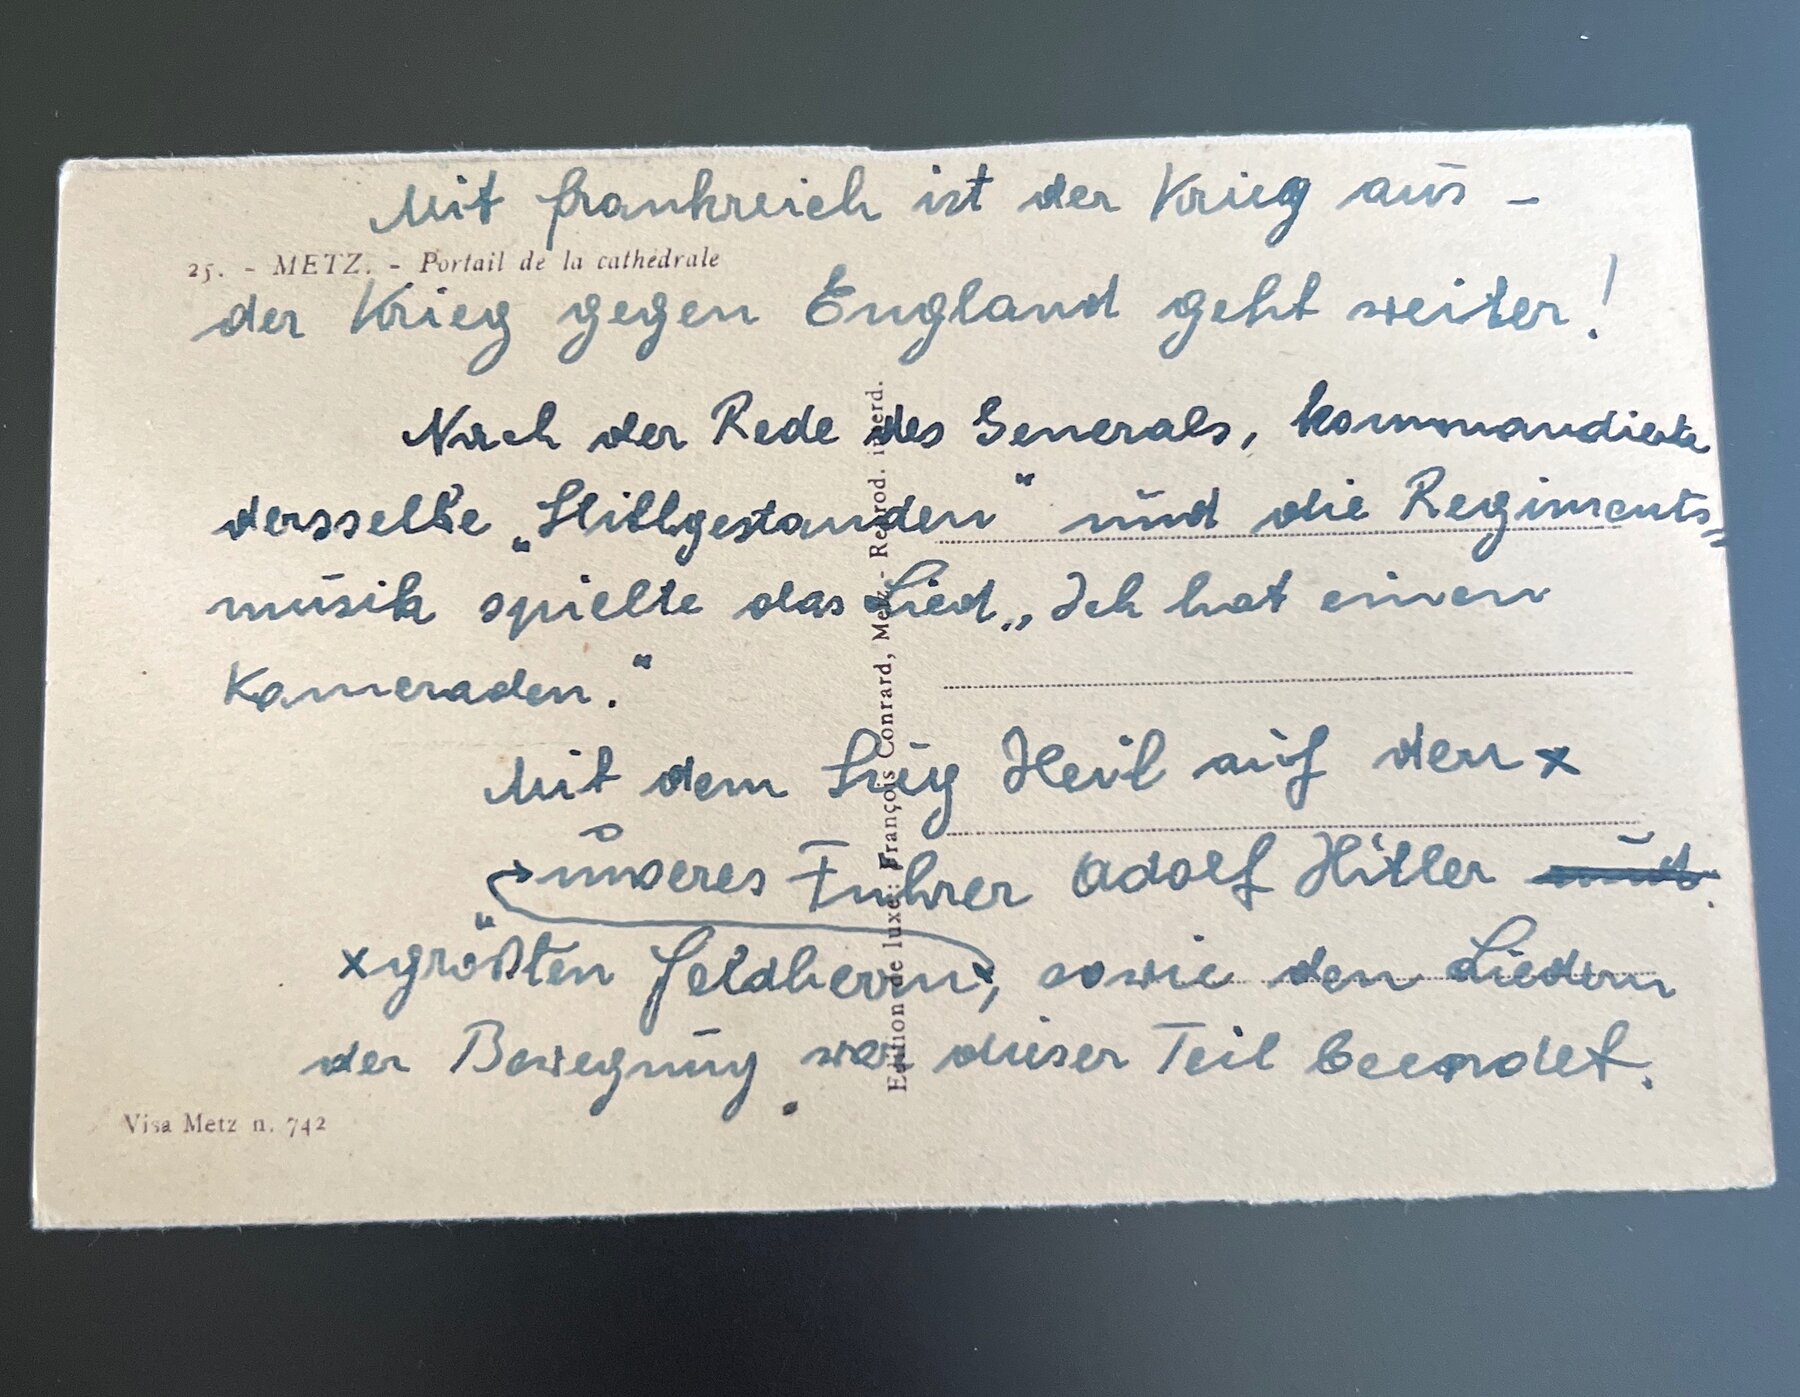 Mit Frankreich ist der Krieg aus –
25. - METZ. - Portail de la cathédrale
der Krieg gegen England geht weiter!
Nach der Rede des Generals, kommandierte
dersselbe „Stillgestanden“ und die Regiments=
musik spielte das Lied „Ich hat einen
Kameraden.“
Mit dem Sieg Heil auf den x
unseres Führer Adolf Hitler und.
x größten Feldherrn x, sowie den Liedern
der Bewegung war dieser Teil beendet.
Visa Metz n. 742
Edition de luxe: François Conrard, Metz - Reprod. interd.